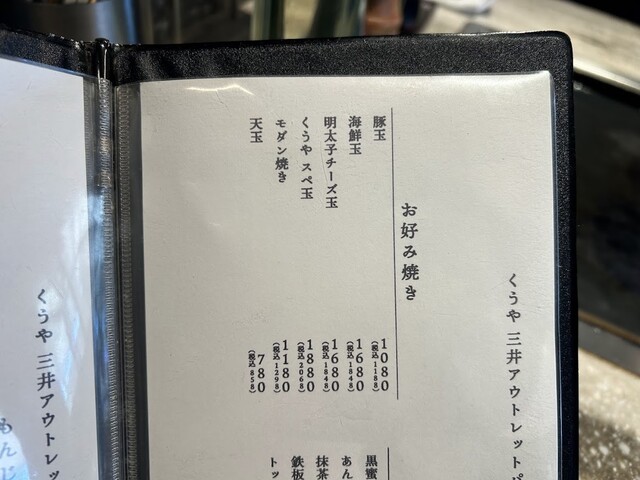 くうや 三井アウトレットパ
お好み焼き
豚玉 1080 (税込1188)
海鮮玉 1680 (税込1848)
明太子チーズ玉 1680 (税込1848)
くうや スペ玉 1880 (税込2068)
モダン焼き 1180 (税込1298)
天玉 780 (税込858)
黒蜜
あん
抹茶
鉄板
トッ
くうや 三井アウトレッ
もんじ